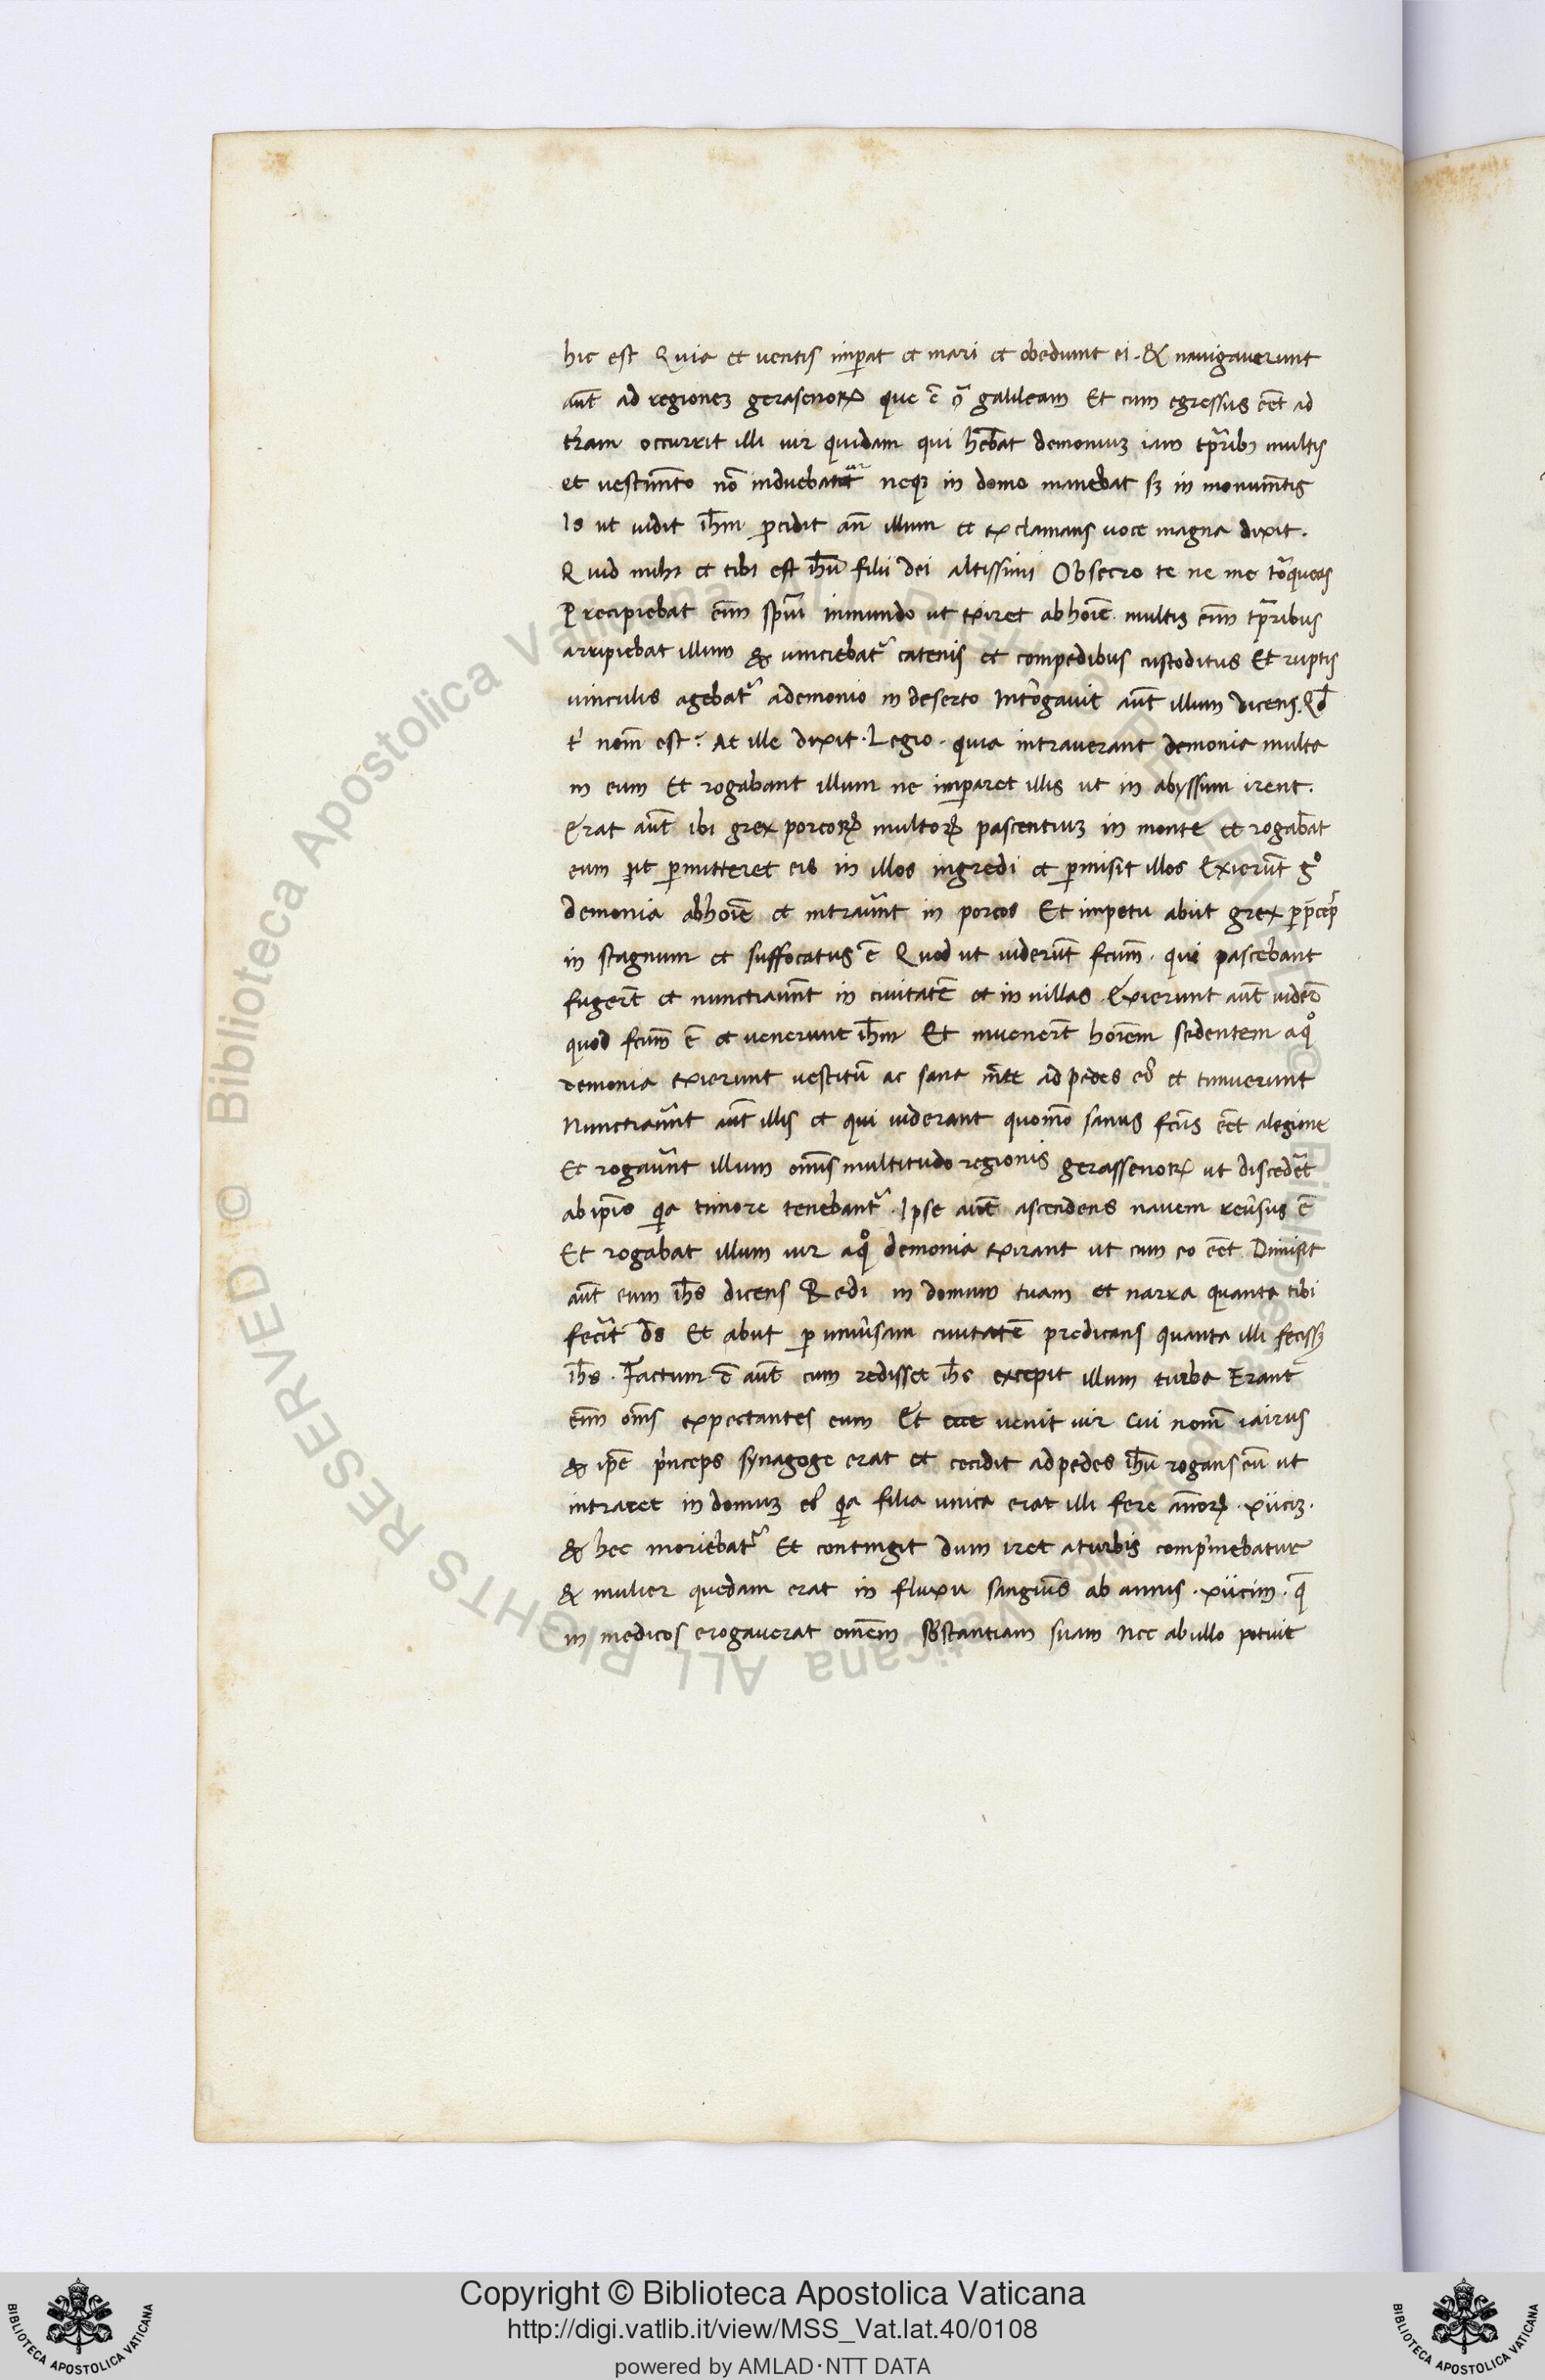 hic est Quia et ventis imꝑat et mari et obediunt ei. & navigaverunt
aut̄ ad regioneꝫ gerasenoꝝ que ē ɔ̄ galileam Et cum egressus eēt ad
tr̄am occurrit illi vir quidam qui hēbat demoniuꝫ iam tp̄ribꝫ multis
et vestim̄to nō induebatur neqꝫ in domo manebat sꝫ in monum̄tis
Is ut vidit ih̄m ꝓcidit an̄ illum et exclamans voce magna dixit.
Quid mihi et tibi est ih̄u filii dei altissimi Obsecro te ne me torqueas
Precipiebat eīm sp̄ui inmundo ut exiret ab hoīe multis eīm tp̄ribus
arripiebat illum & vinciebat᷑ catenis et compedibus custoditus Et ruptis
vinculis agebat᷑ ademonio in deserto Int̓rogavit aut̄ illum dicens. Qđ
t' nom̄ est? At ille dixit. Legio. quia intraverant demonia multa
in eum Et rogabant illum ne imꝑaret illis ut in abyssum irent.
Erat aut̄ ibi grex porcoꝝ multoꝝ pascentiuꝫ in monte et rogabāt
eum ut ꝑmitteret eis in illos ingredi et ꝑmisit illos Exierūt gͦ
demonia ab hoīe et intrav̄unt in porcos Et impetu abiit grex ꝑ p̄cep̄
in stagnum et suffocatus ē Quod ut viderūt fcūm. qui pascebant
fugerūt et nunctiav̄unt in civitatē et in villas. Exierunt aut̄ vider̄
quod fcūm ē et venerunt ih̄m Et invenerūt hoīem sedentem aqͦ
demonia exierunt vestitū ac sana mēte ad pedes ei' et timuerunt
Nunctiav̄unt aut̄ illis et qui viderant quom̄o sanus fcūs eēt alegione
Et rogav̄unt illum om̄is multitudo regionis gerassenoꝝ ut discedēt
ab ip̄is qa timore tenebant᷑. Ipse aut̄ ascendens navem rev̓sus ē
Et rogabat illum vir aqͦ demonia exirant ut cum eo eēt Dimisit
aut̄ eum ih̄s dicens Redi in domum tuam et narra quanta tibi
fecit d̄s Et abiit ꝑ univ̓sam civitatē predicans quanta illi fecissꝫ
ih̄s. Factum ē aut̄ cum redisset ih̄s excepit illum turba Erant
eīm om̄s expectantes eum Et ecce venit vir Cui nom̄ iairus
& ip̄e p̓nceps synagoge erat et cecidit ad pedes ih̄u rogans eū ut
intraret in domuꝫ ei' qa filia unica erat illi fere annoꝝ .xiiciꝫ.
& hec moriebat᷑ Et contingit dum iret aturbis comp̓mebatur
& mulier quedam erat in fluxu sangui̓s ab annis .xiicim. q̄
in medicos erogaverat om̄em sb̄stantiam suam Nec ab ullo potuit
© Biblioteca Apostolica Vaticana ALL RIGHTS RESERVED
Copyright © Biblioteca Apostolica Vaticana
http://digi.vatlib.it/view/MSS_Vat.lat.40/0108
powered by AMLAD·NTT DATA
BIBLIOTECA APOSTOLICA VATICANA
BIBLIOTECA APOSTOLICA VATICANA